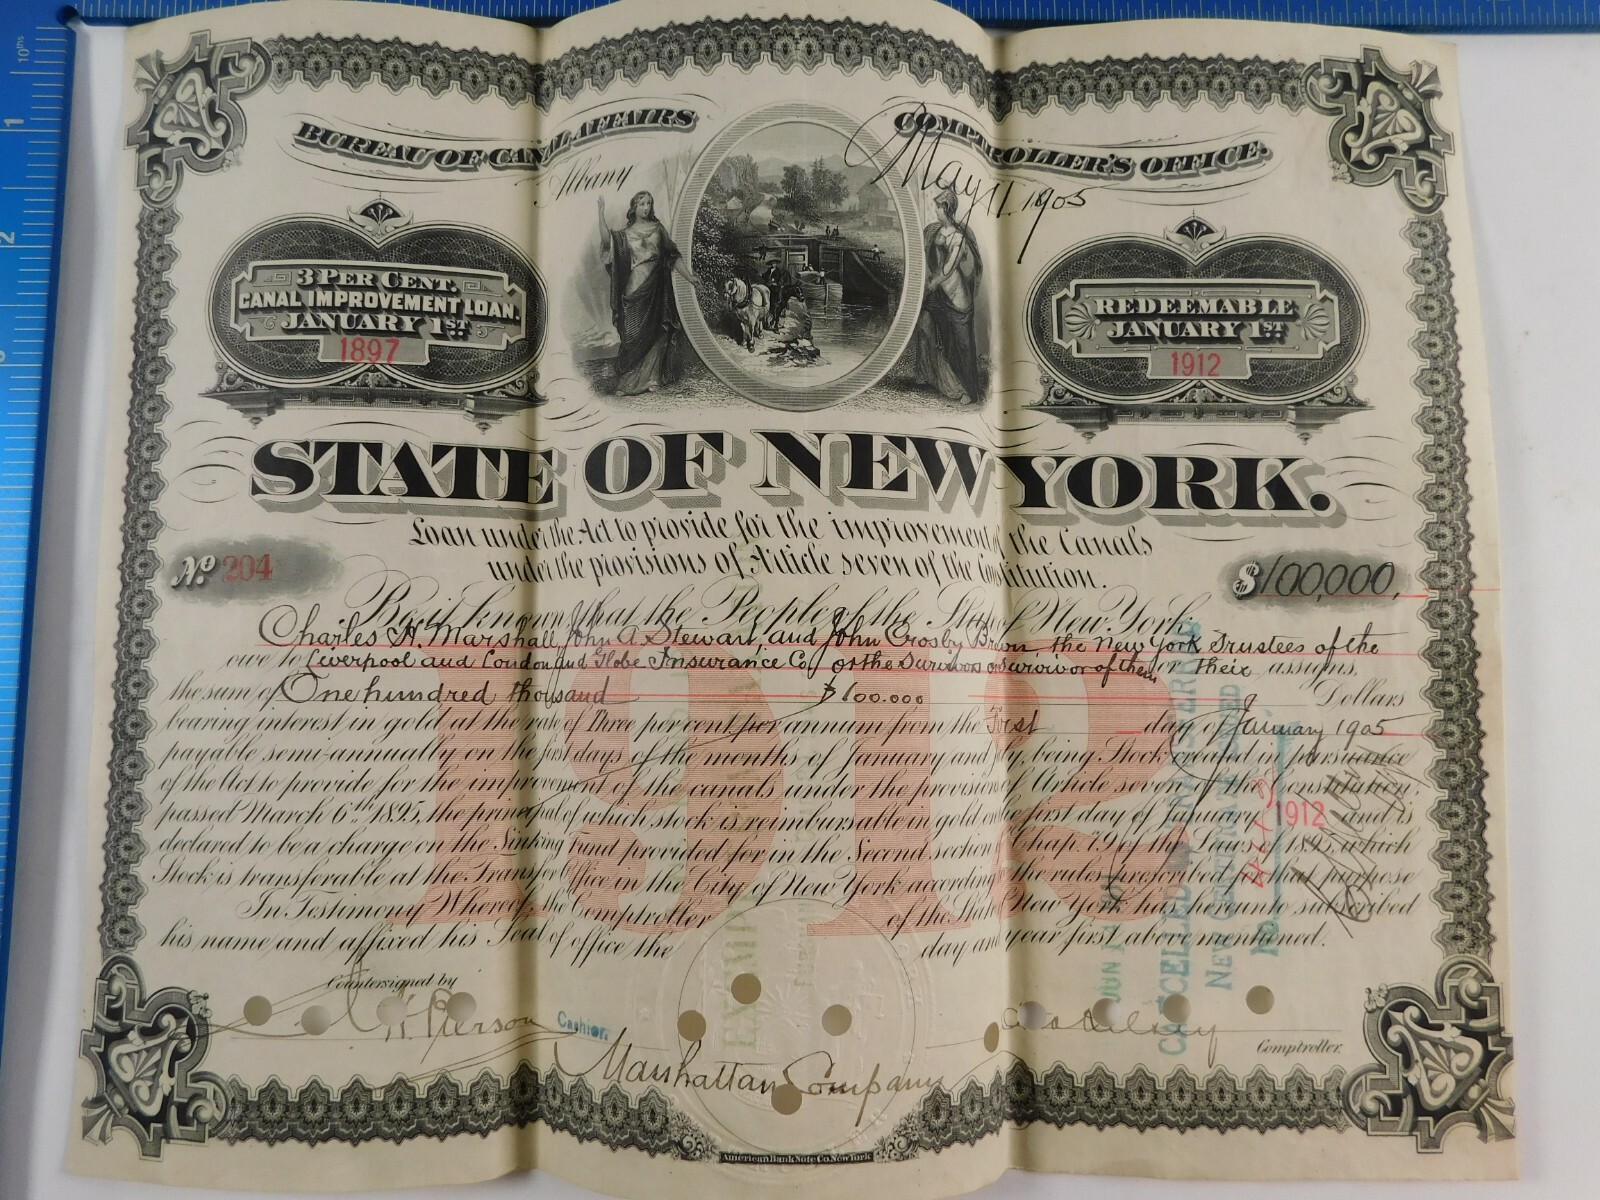 BUREAU OF CANAL AFFAIRS
COMPTROLLER'S OFFICE.
Albany
May 11. 1905
3 PER CENT.
CANAL IMPROVEMENT LOAN.
JANUARY 1ST
1897
REDEEMABLE
JANUARY 1ST
1912
STATE OF NEW YORK.
Loan under the Act to provide for the improvement of the Canals
under the provisions of Article seven of the Constitution.
No. 204
$100,000.
Be it known that the People of the State of New York
Charles H. Marshall, John A. Stewart, and John Crosby Brown, the New York Trustees of the
owe to Liverpool and London and Globe Insurance Co., or the Survivors or Survivor of them or their assigns,
the sum of One hundred thousand $100.000 Dollars
bearing interest in gold at the rate of Three per cent per annum from the First day of January 1905
payable semi-annually on the first days of the months of January and July, being Stock created in pursuance
of the Act to provide for the improvement of the canals under the provisions of Article seven of the Constitution,
passed March 6th 1895, the principal of which stock is reimbursable in gold on the first day of January 1912 and is
declared to be a charge on the Sinking Fund provided for in the Second section of Chap. 79 of the Laws of 1895, which
Stock is transferable at the Transfer Office in the City of New York according to the rules prescribed for that purpose
In Testimony Whereof, the Comptroller of the State of New York has hereunto subscribed
his name and affixed his Seal of office the day and year first above mentioned.
1912
Countersigned by
Pierson
Cashier.
Manhattan Company
Comptroller.
JUN
CANCELLED
NEW
American Bank Note Co. New York